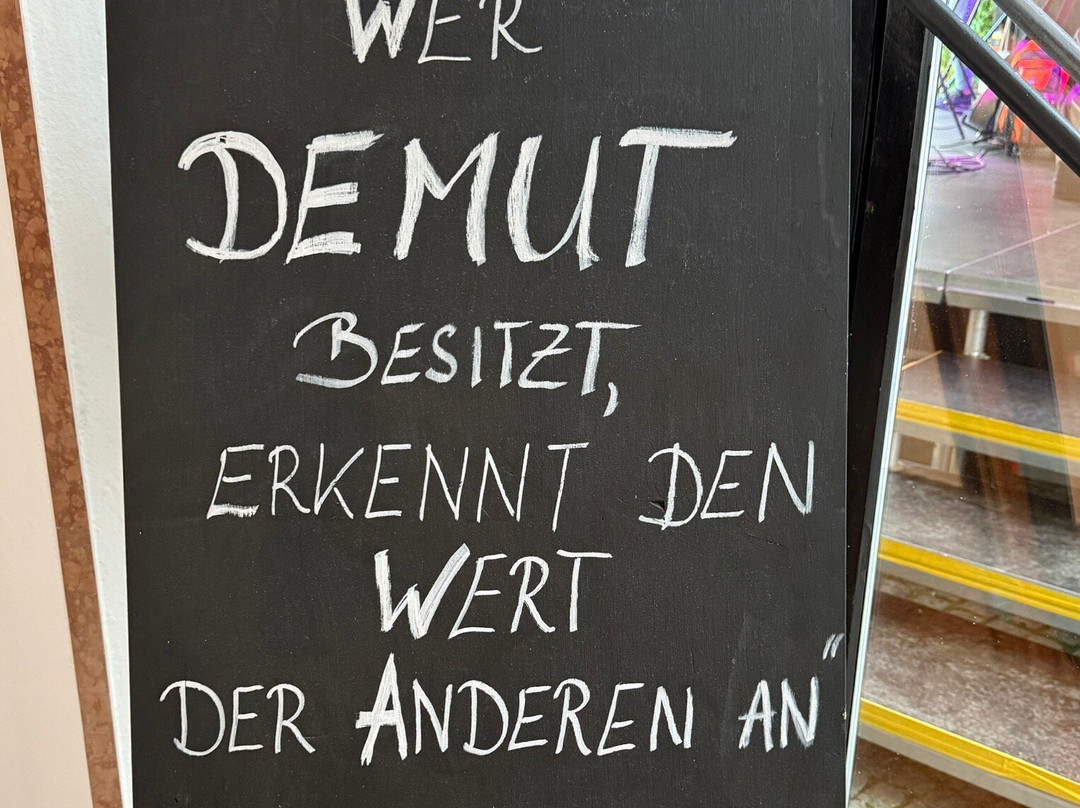 WER
DEMUT
BESITZT,
ERKENNT DEN
WERT
DER ANDEREN AN"